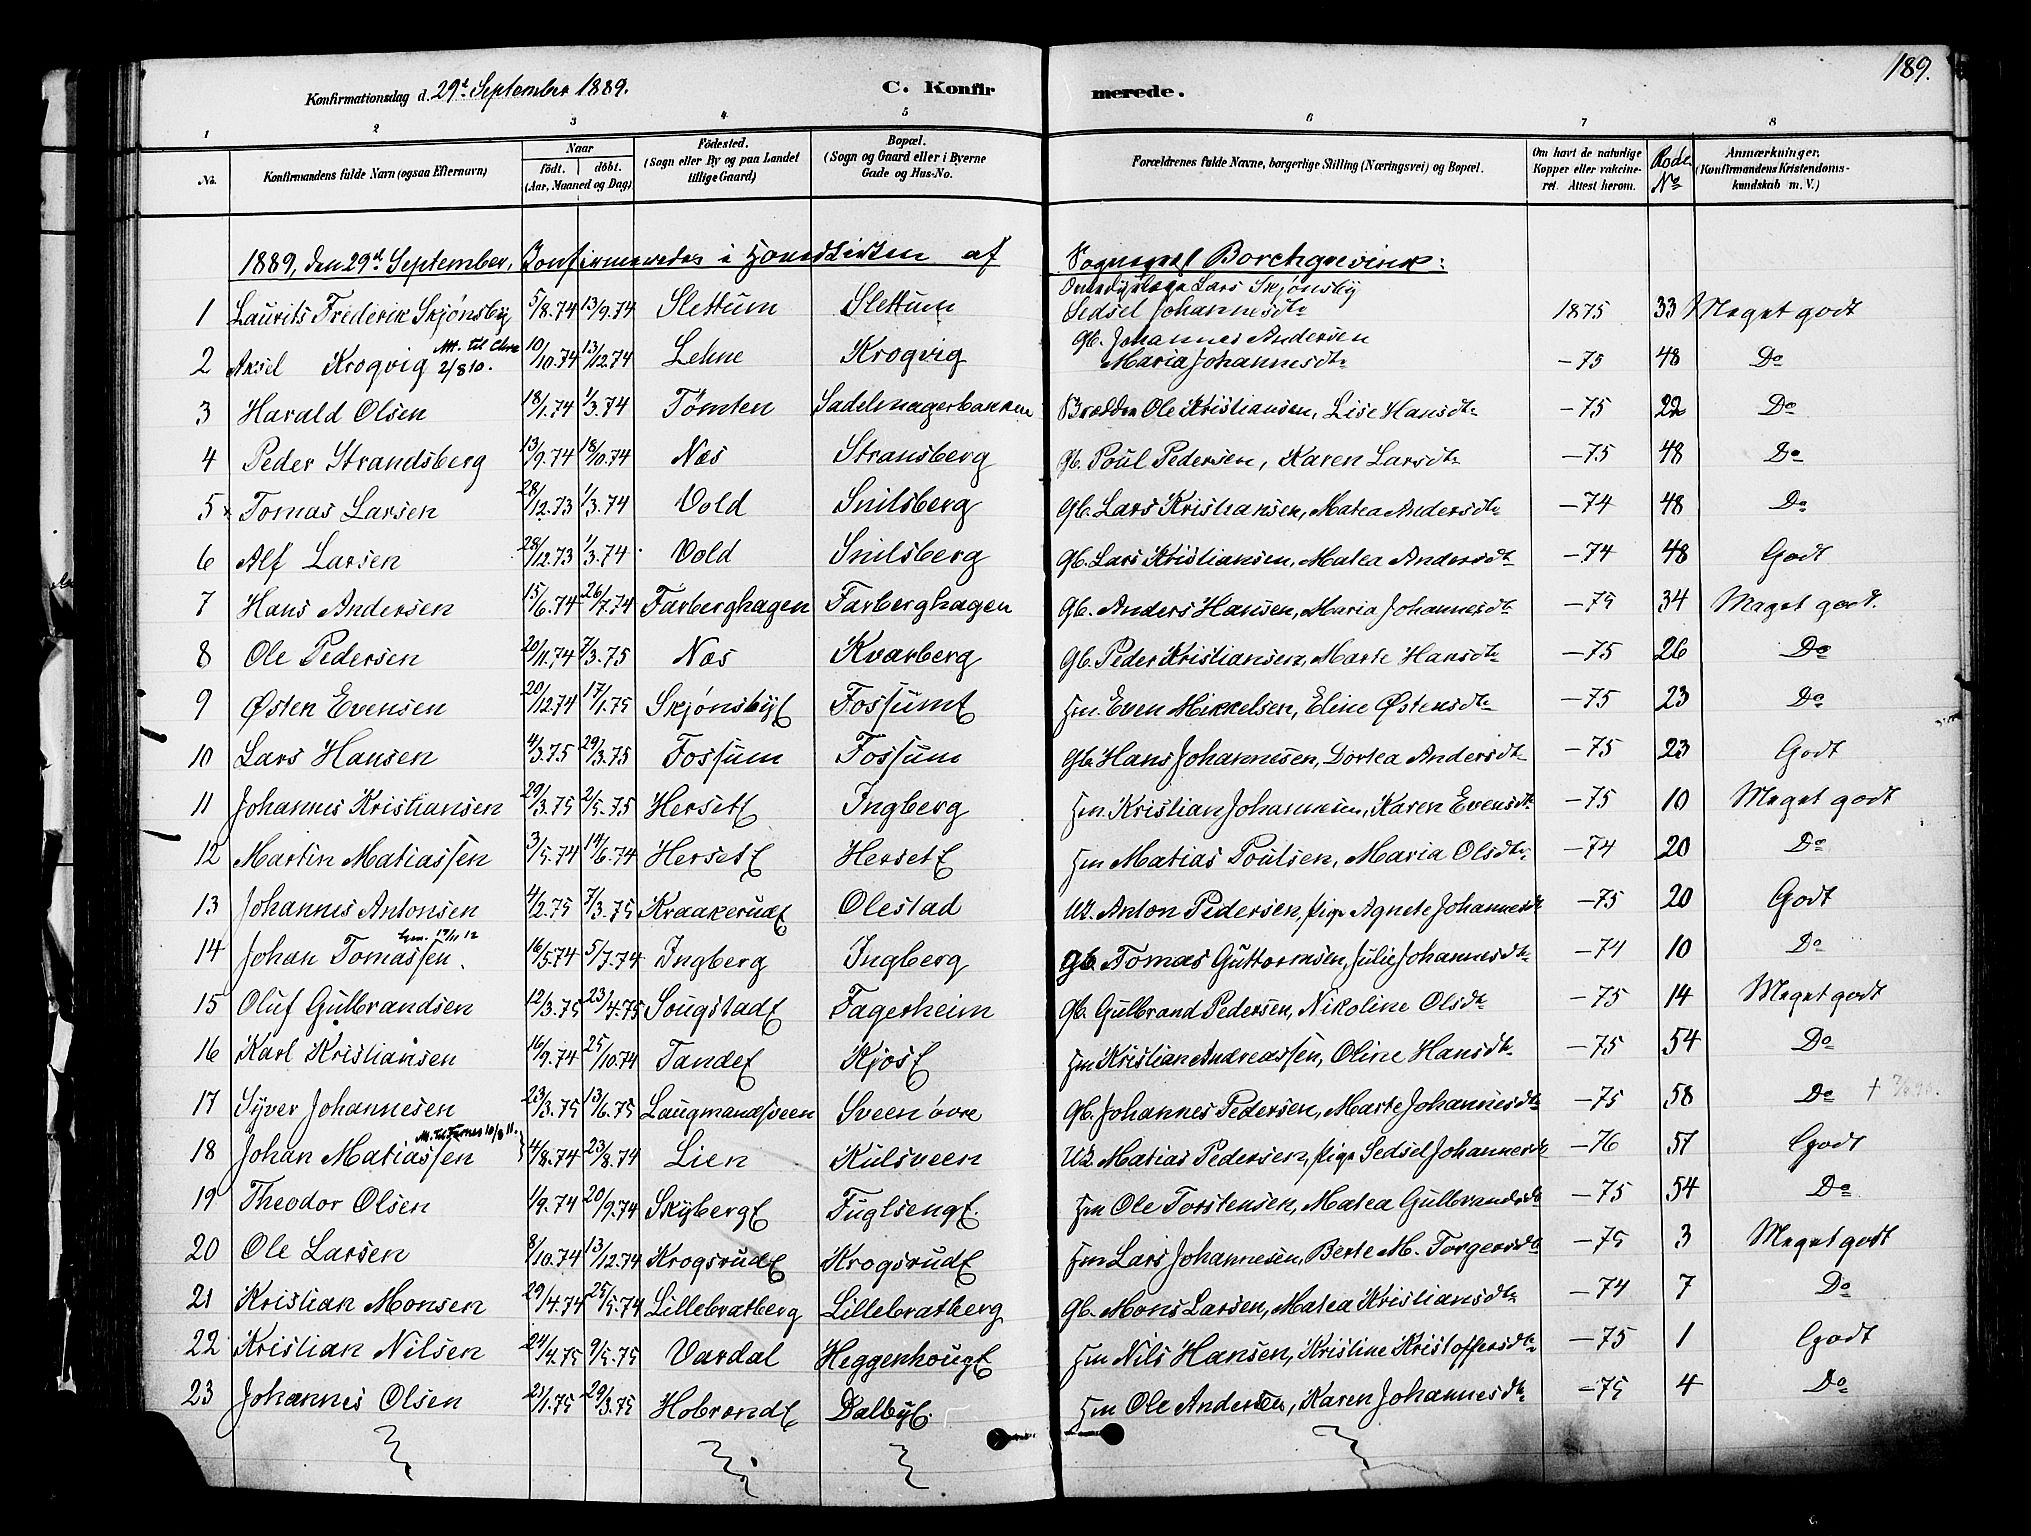 189.
Konfirmationsdag d. 29d. September 1889. C. Konfirmerede.
1 2 3 4 5 6 7 8
No. Konfirmandens fulde Navn (ogsaa Efternavn) Naar født. døbt. (Aar, Maaned og Dag) Födested. (Sogn eller By og paa Landet tillige Gaard) Bopæl. (Sogn og Gaard eller i Byerne Gade og Hus-No. Forældrenes fulde Navne, borgerlige Stilling (Næringsvei) og Bopæl. Om havt de naturlige Kopper eller vakcineret. Attest herom. Rode No Anmærkninger. (Konfirmandens Kristendomskundskab m. V.)
1889, den 29d. September, Konfirmeredes i Hovedkirken af Sogneprest Borchgrevink:
1 Laurits Frederik Skjønsby 5/8.74 13/9.74 Slettum Slettum Lars Skjønsby Sedsel Johannesdtr 1875 33 Meget godt
2 Aksel Krogvig Att. til Chra 2/8 10. 10/10.74 13/12.74 Lehne Krogvig Gb. Johannes Andersen Maria Johannesdtr —75 48 Do
3 Harald Olsen 18/1.74 1/3.74 Tømten Sadelmagerbakken Ole Kristiansen, Lise Hansdtr —75 22 Do
4 Peder Strandsberg 13/9.74 18/10.74 Næs Stransberg Gb. Poul Pedersen, Karen Larsdtr —75 48 Do
5 Tomas Larsen 28/12.73 1/3.74 Vold Snilsberg Gb. Lars Kristiansen, Matea Andersdtr —74 48 Do
6 Alf Larsen 28/12.73 1/3.74 Vold Snilsberg Gb. Lars Kristiansen, Matea Andersdtr —74 48 Godt
7 Hans Andersen 15/6.74 26/7.74 Farberghagen Farberghagen Gb. Anders Hansen, Maria Johannesdtr —75 34 Meget godt.
8 Ole Pedersen 20/11.74 7/3.75 Næs Kvarberg Gb. Peder Kristiansen, Marte Hansdtr —75 26 Do
9 Østen Evensen 20/12.74 17/1.75 SkjønsbyE FossumE Hm. Even Mikkelsen, Eline Østensdtr —75 23 Do
10 Lars Hansen 4/3.75 29/3.75 Fossum Fossum Gb. Hans Johannesen, Dortea Andersdtr —75 23 Godt
11 Johannes Kristiansen 29/3.75 2/5.75 HersetE Ingberg Hm. Kristian Johannesen, Karen Evensdtr —75 10 Meget godt
12 Martin Matiassen 3/5.74 14/6.74 HersetE HersetE Hm Matias Poulsen, Maria Olsdtr —74 20 Do
13 Johannes Antonsen 4/2.75 7/3.75 KraakerudE Olestad Uk. Anton Pedersen, pige Agnete Johannesdtr —75 20 Godt
14 Johan Tomassen. 17/11 12 16/5.74 5/7.74 Ingberg Ingberg Gb. Tomas Guttormsen, Julie Johannesdtr —74 10 Do
15 Oluf Gulbrandsen 12/3.75 23/4.75 SougstadE Fagerheim Gb. Gulbrand Pedersen, Nikoline Olsdtr —75 14 Meget godt
16 Karl Kristiansen 16/9.74 25/10.74 TandeE KjosE Hm Kristian Andreassen, Oline Hansdtr —75 54 Do
17 Syver Johannesen 23/3.75 13/6.75 Laugmandsveen Sveen øvre Gb. Johannes Pedersen, Marte Johannesdtr —75 58 Do †
18 Johan Matiassen Att. til Furnes 10/8 11. 4/8.74 23/8.74 Lien Kulsveen Uk Matias Pedersen, pige Sedsel Johannesdtr —76 57 Godt
19 Theodor Olsen 1/9.74 20/9.74 SkybergE FuglsengE. Hm Ole Torstensen, Matea Gulbrandsdtr —75 54 Do
20 Ole Larsen 8/10.74 13/12.74 KrogsrudE KrogsrudE Hm Lars Johannesen, Berte M. Torgersdtr —75 3 Meget godt
21 Kristian Monsen 29/4.74 25/5.74 Lillebratberg Lillebratberg Gb. Mons Larsen, Matea Kristiansdtr —74 7 Do
22 Kristian Nilsen 24/4.75 9/5.75 Vardal HeggenhougE Hm Nils Hansen, Kristine Kristoffersdtr —75 1 Godt
23 Johannes Olsen 21/1.75 29/3.75 HobrandE DalbyE. Hm Ole Andersen, Karen Johannesdtr —75 4 Do